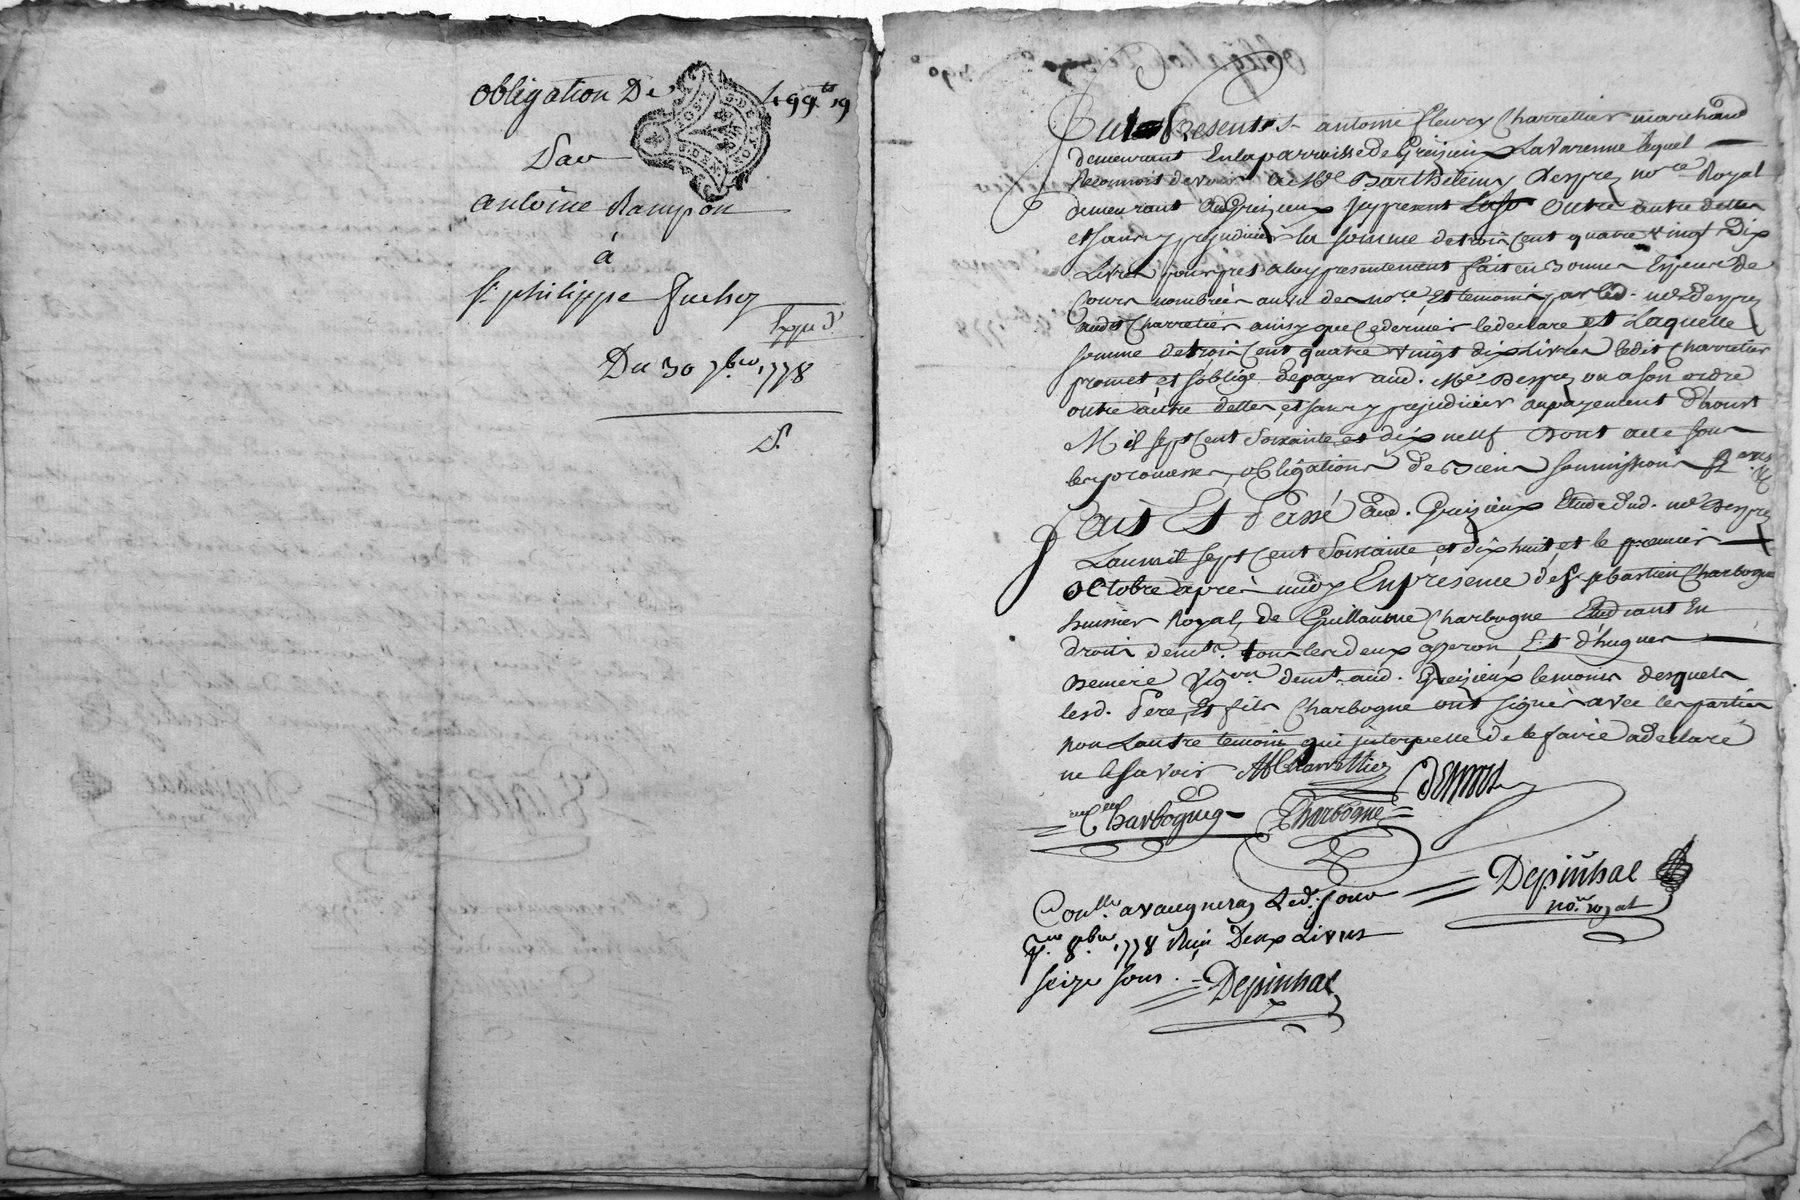 obligation De 499 lt 19
Par
antoine Rampon
à
Sr philippe
Expd.
Du 30 7bre 1778
Ct present Sr antoine fleury Charrettier marchand
demeurant en la parroisse de Greizieux Lavarenne lequel
Reconnoit devoir a Me Barthelemy Despre nore Royal
demeurant aud Greizieux sy present outre autre dettes
et sans y prejudicier la somme de trois cent quatre vingt dix
Livres pour pret a luy presentement fait en bonnes Espece de
Cours nombrées au vu de nore et temoins par led. me Despre
audit Charretier ainsy que ce dernier le declare et Laquelle
somme de trois Cent quatre vingt dix livres ledit Charretier
promet et soblige de payer aud. Me Despre ou a son ordre
outre autre dettes et sans y prejudicier au payement
Mil sept Cent Soixante et dix neuf Dont acte sous
les promesses, obligations de biens soumissions
fait Et Passé aud. Greizieux Etude dud. me Despre
Lan mil sept Cent Soixante et dix huit et le premier
octobre apres midy En presence de Sr sebastien Charbogne
huissier Royal, de Guillaume Charbogne Etudiant En
droits demt. tous les deux a peron, Et d'hugues
Bemere vigon demt. aud. Greizieux temoins desquels
lesd. Pere, Et fils Charbogne ont signés avec les parties
non Lautre temoin qui interpelle de le faire a declaré
ne le savoir Charrettier
Charbogne Charbogne
Depinhal
no. royal
Conlle. a vaugneray Led. jour
8bre 1778 Reçu Deux Livres
seize sous. Depinhal